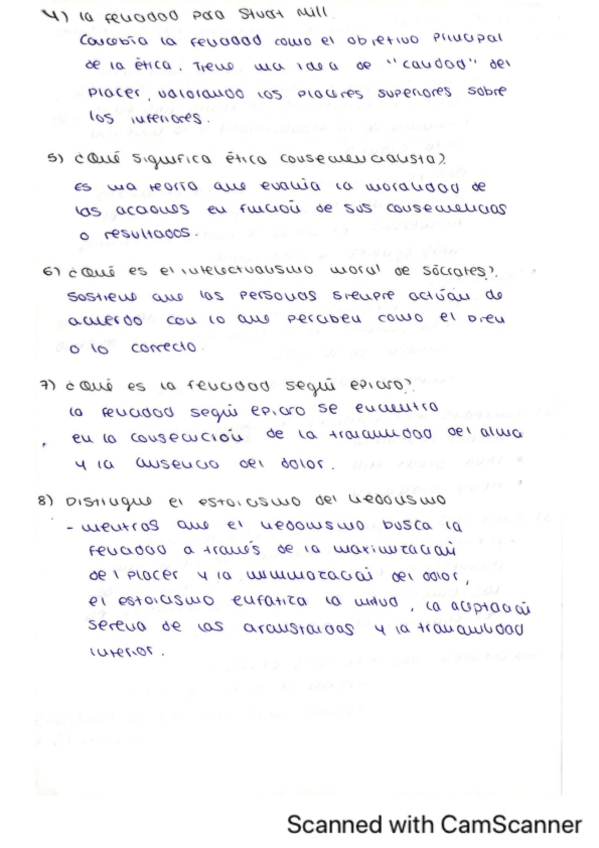 4) la felicidad para Stuart Mill
Concebía la felicidad como el objetivo principal
de la ética. Tiene una idea de "calidad" del
placer, valorando los placeres superiores sobre
los inferiores.
5) ¿Qué significa ética consecuencialista?
Es una teoría que evalúa la moralidad de
las acciones en función de sus consecuencias
o resultados.
6) ¿Qué es el intelectualismo moral de Sócrates?
Sostiene que las personas siempre actúan de
acuerdo con lo que perciben como el bien
o lo correcto.
7) ¿Qué es la felicidad según epicuro?
la felicidad según epicuro se encuentra
en la consecución de la tranquilidad del alma
y la ausencia del dolor.
8) Distingue el estoicismo del hedonismo
- mientras que el hedonismo busca la
felicidad a través de la maximización
del placer y la minimización del dolor,
el estoicismo enfatiza la virtud, la aceptación
serena de las circunstancias y la tranquilidad
interior.
Scanned with CamScanner